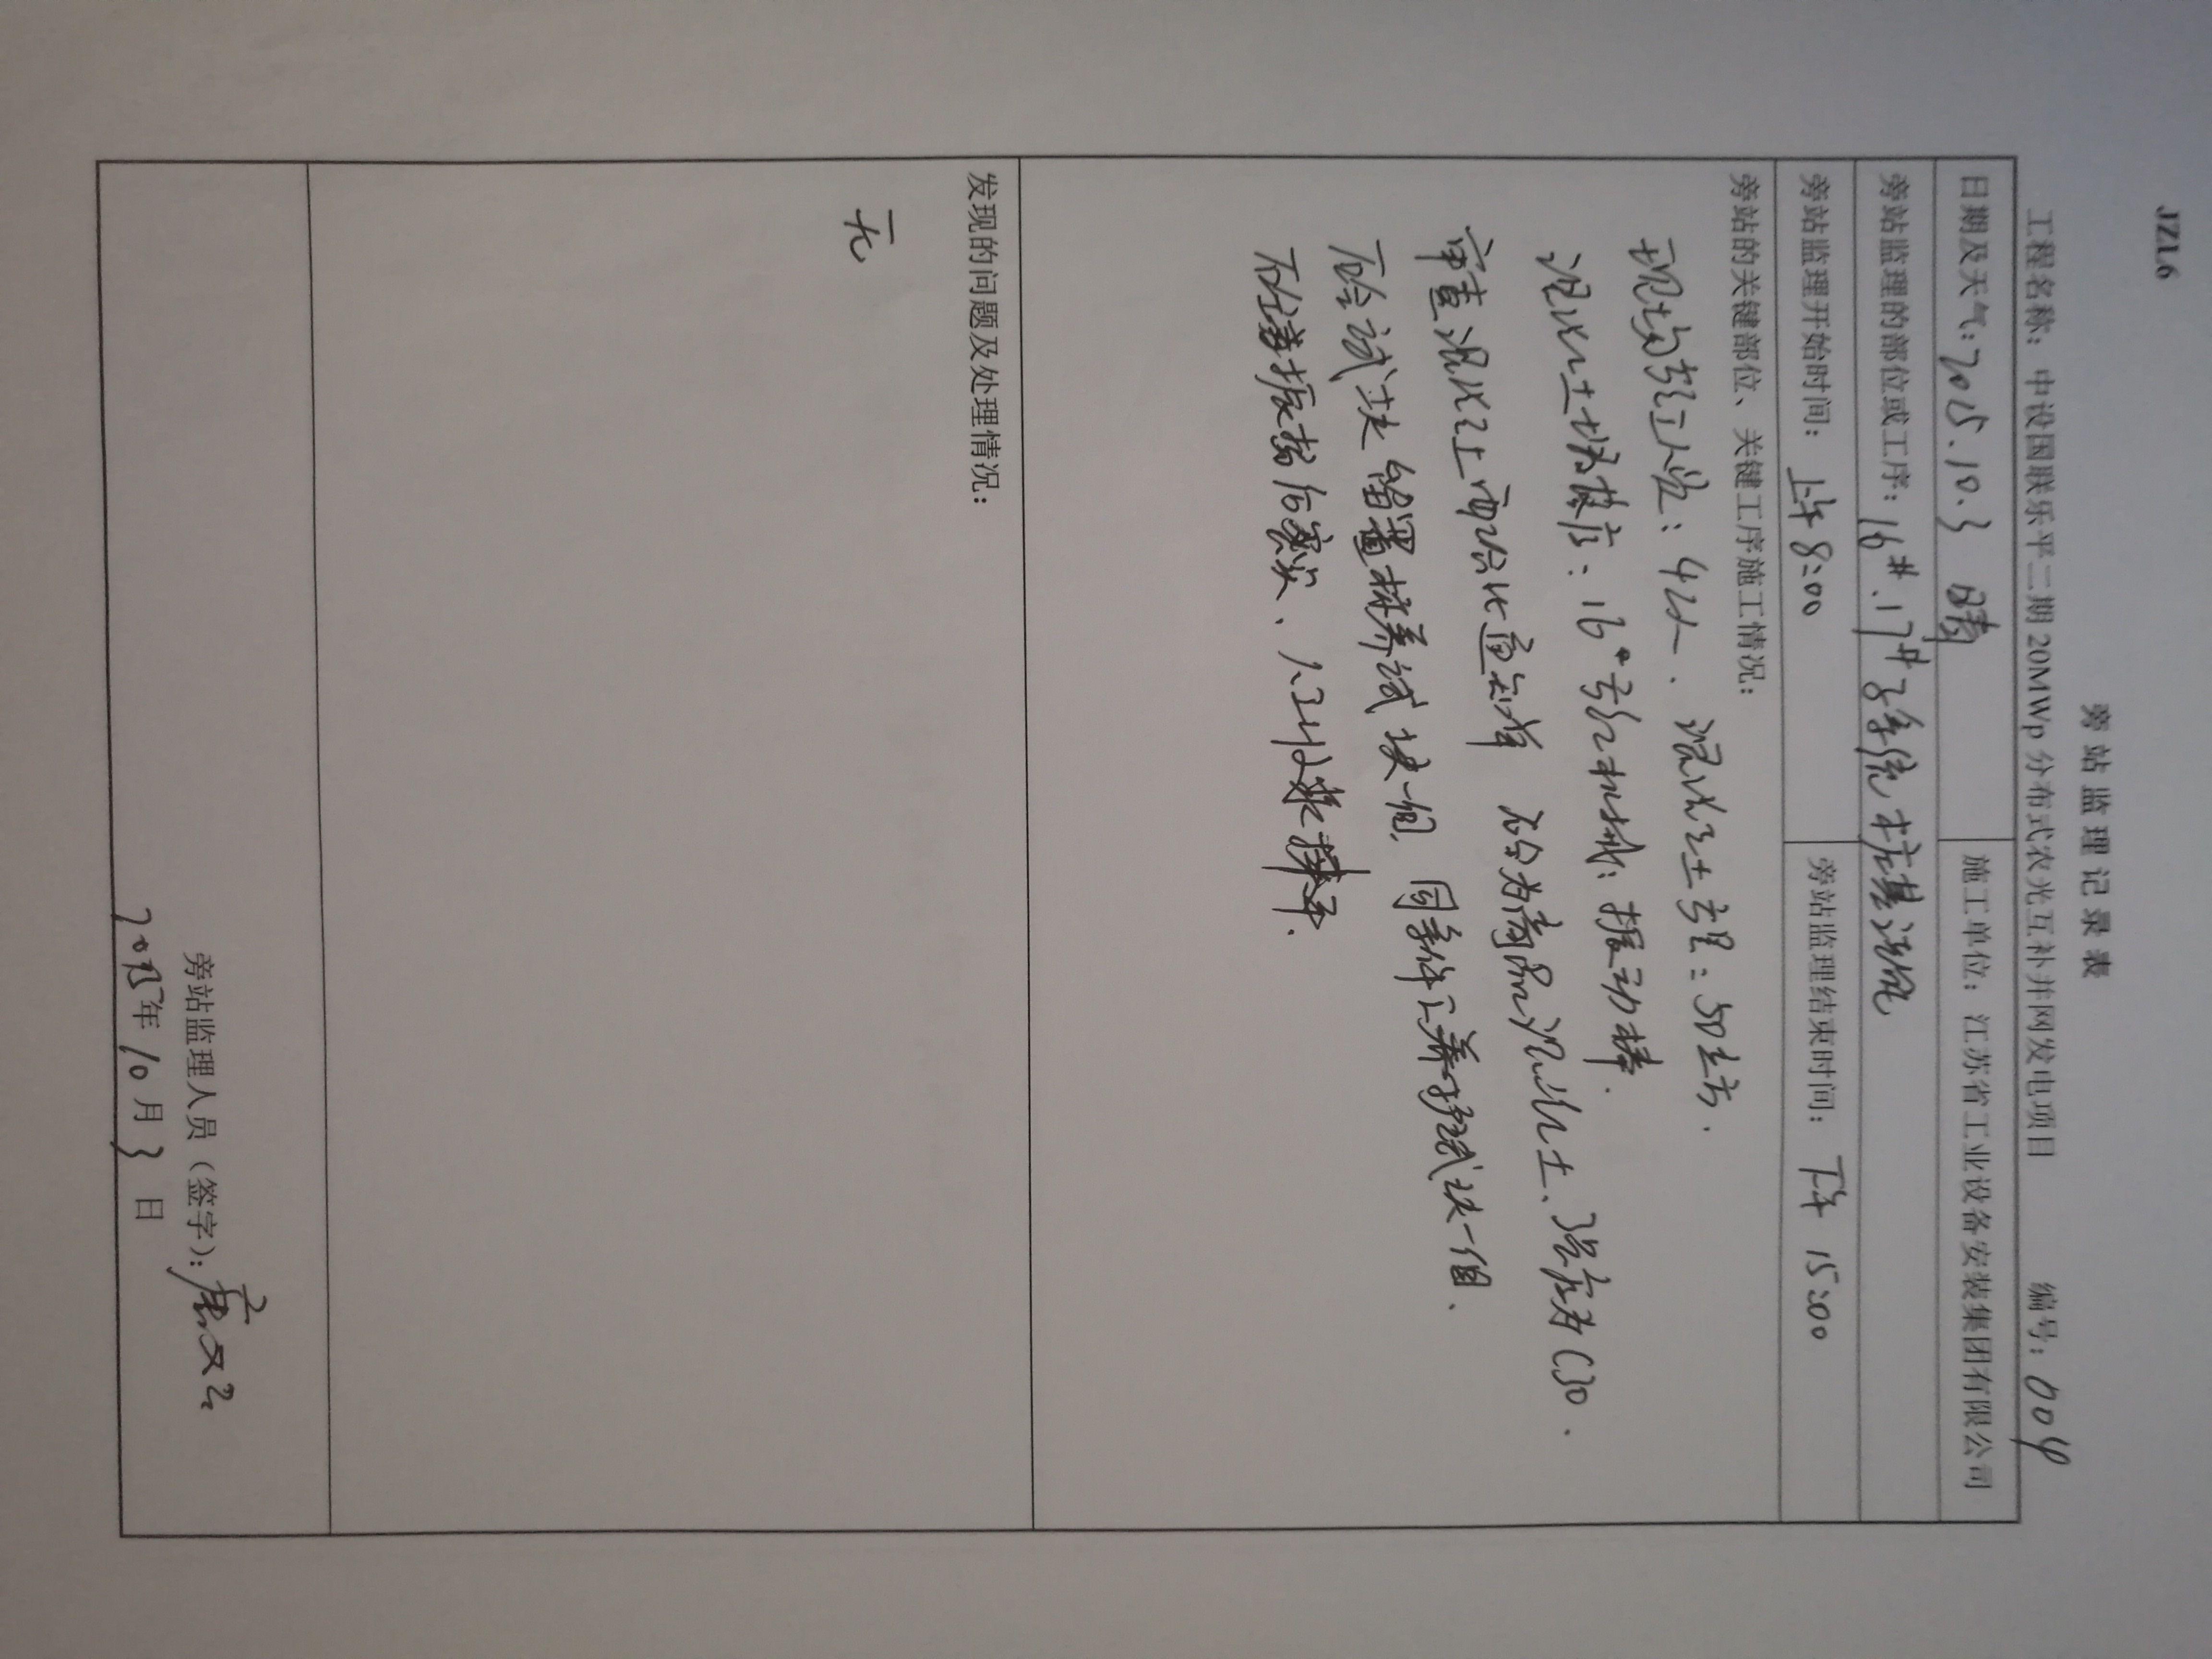 JZL6
旁站监理记录表
工程名称：中设国联乐平二期20MWp分布式农光互补并网发电项目 编号：004
日期及天气：2015.10.3 晴 施工单位：江苏省工业设备安装集团有限公司
旁站监理的部位或工序：16#.17#子系统桩基浇筑
旁站监理开始时间：上午8:00 旁站监理结束时间：下午15:00
旁站的关键部位、关键工序施工情况：
现场施工人数：42人、混凝土方量：50立方.
混凝土坍落度：16 施工机械：振动棒.
审查混凝土配合比通知单 为商品混凝土、强度为C30.
砼试块留置标养试块一组 同条件养护试块一组.
砼 振捣 密实、人工收浆 平.
发现的问题及处理情况：
无
旁站监理人员（签字）：
2015年10月3日